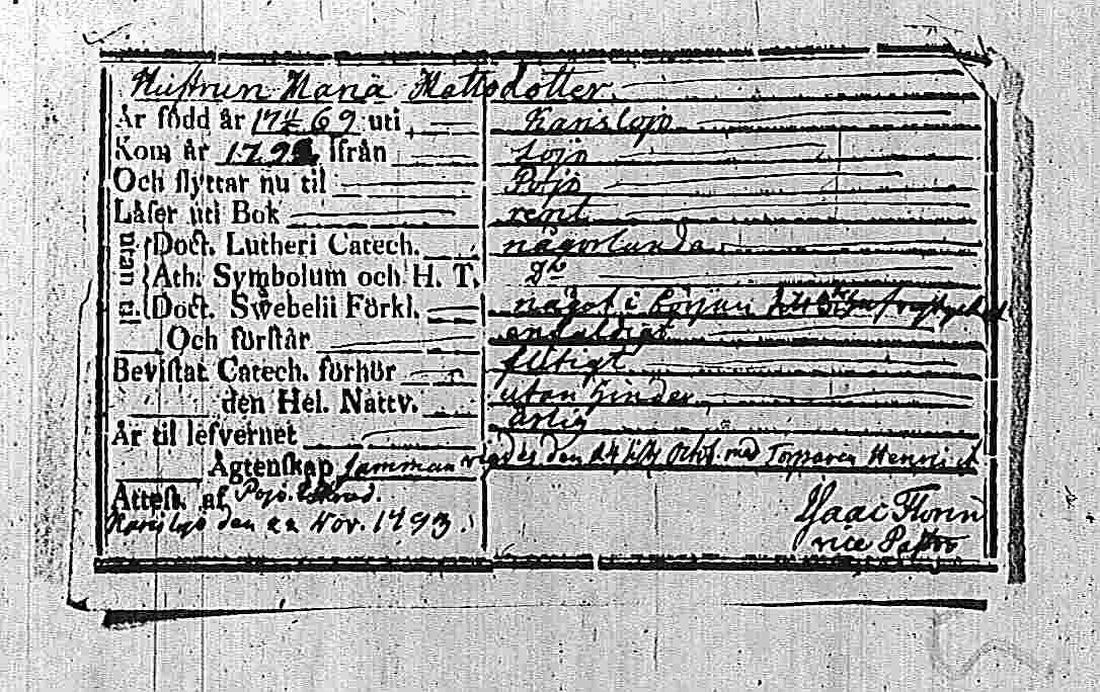 Hustrun Maria Mattsdotter
Är född år 17 4/2 69 uti Karislojo
Kom år 1792 ifrån Lojo
Och flyttar nu til Pojo
Läser uti Bok rent
utan Doct. Lutheri Catech. någorlunda
Ath. Symbolum och H. T. do
Doct. Swebelii Förkl. något i början
Och förstår enfaldigt
Bevistat Catech. förhör flitigt
den Hel. Nattv. utan hinder
Är til lefvernet ärlig
Ägtenskap sammanvigdes den 24 Octob. med Torparen Henric
Attest. af Pojo
Karislojo den 22 Nov. 1793.
Isaac Florin
vice Pastor